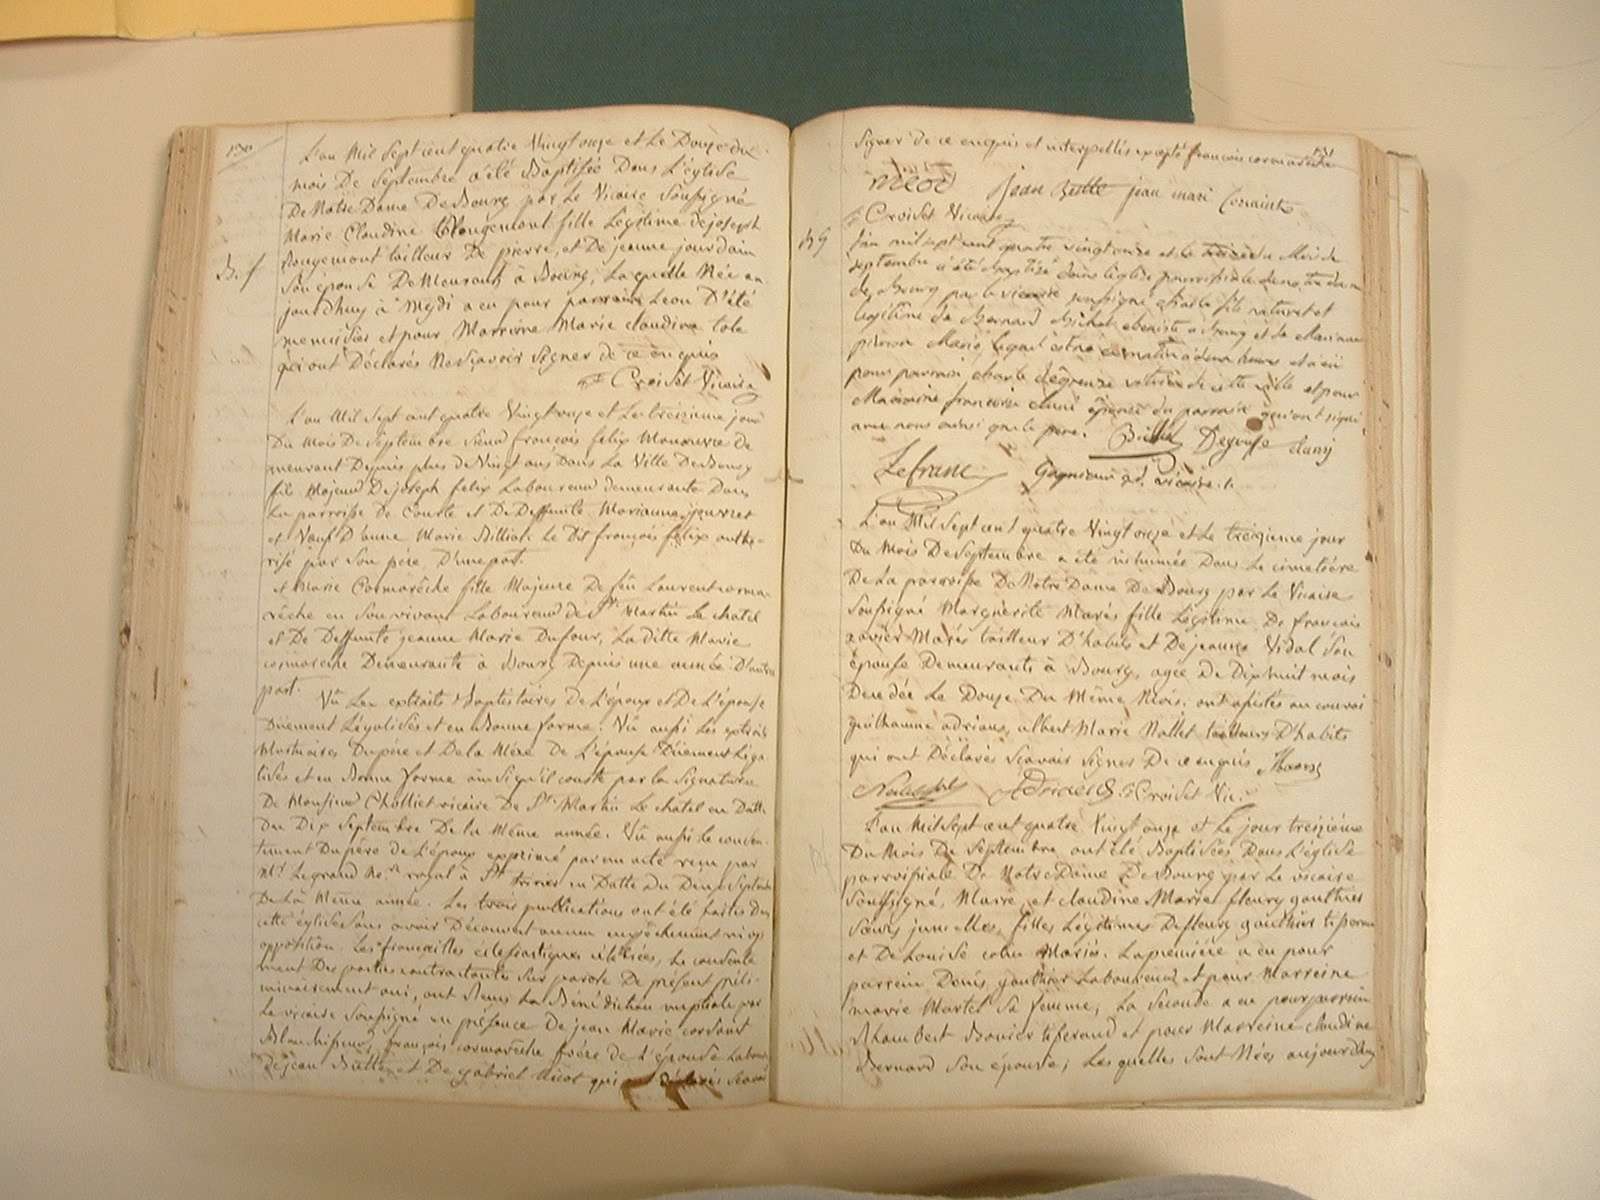 130
L'an Mil Sept cent quatre Vingt onze et Le Douze du
mois De Septembre a été Baptisée Dans L'église
De Notre Dame De Bourg par Le Vicaire Soussigné
Marie Claudine Rougemont fille Légitime de joseph
Rougemont tailleur De pierre, et De jeanne jourdain
Son épouse Demeurants à Bourg, Laquelle Née au
jourdhuy à Midy a eu pour parrain Leon D'été
menuisier et pour Marreine Marie claudine
qui ont Déclarés Ne Sçavoir Signer de ce enquis
Croiset Vicaire
B. f
L'an Mil Sept cent quatre Vingt onze et Le treizieme jour
Du Mois De Septembre Sieur françois felix Manouvre de
meurant Depuis plus de Vingt ans Dans La Ville De Bourg
fils Majeur De joseph felix Laboureur demeurant Dans
La parroisse De et De Deffunte Marianne
et Veuf D'anne Marie Billion Le Dit françois felix autho-
risé par Son père D'une part.
et Marie Cormarêche fille Majeure De feu Laurent corma-
rêche en Son vivant Laboureur de St Martin Le chatel
et De Deffunte jeanne Marie Dufour, La Ditte Marie
cormareche Demeurante à Bourg Depuis une année D'autre
part.
Vû Les extraits Baptistaires De L'époux et De L'épouse
Dûement Légalisés et en Bonne forme. Vû aussi Les extraits
Mortuaires Du père et De La Mère De L'épouse Dûement Léga-
lisés et en Bonne forme ainsi qu'il conste par La Signature
De Monsieur Chollet vicaire De St Martin Le chatel en Datte
Du Dix Septembre De La Même année. Vû aussi Le consen-
tement Du père de L'époux exprimé par un acte reçu par
Mr Legrand Nre royal à St trivier en Datte Du Deux Septembre
De La Même année. Les trois publications ont été faites Dans
cette église Sans avoir Découvert aucun empêchement ni
opposition. Les fiancailles célébrées, Le consente
ment Des parties contractantes Sur parole De présent préli-
minairement oui, ont Reçus La Bénédiction nuptiale par
Le vicaire Soussigné en présence De jean Marie
Blanchisseur, françois cormarêche frère de L'épouse Laboureur
De jean Bulle et De gabriel qui ont Déclarés Scavoir
131
Signer de ce enquis et interpellés excepté francois cormareche
jean Bulle jean mari
Croiset Vicaire
B G
L'an mil sept cent quatre vingt onze et le treize du Mois de
septembre a été Baptisé dans l'église parroissiale de notre dame
de Bourg par le vicaire soussigné charle fils naturel et
légitime de Bernard Bichet ebeniste a Bourg et de Marianne
pierron Mariés lequel est né ce matin à deux heures et a eu
pour parrain charle de cette ville et pour
Marraine francoise épouse du parrain qui ont signé
avec nous ainsi que le pere.
Lefranc vicaire
L'an Mil Sept cent quatre Vingt onze et Le treizieme jour
Du Mois De Septembre a été inhumée Dans Le cimetière
De La parroisse De Notre Dame De Bourg par Le Vicaire
Soussigné Marguerite Marés fille Légitime De francois
xavier Marés tailleur D'habits et De jeanne Vidal Son
épouse Demeurants à Bourg, agée De Dixhuit mois
Décedée Le Douze Du Même Mois, ont assistés au convoi
guilhaume adrians, albert Marie Nallet tailleurs D'habits
qui ont Déclarés Scavoir Signer De ce enquis
Croiset Vic.
L'an Mil Sept cent quatre Vingt onze et Le jour treizieme
Du Mois De Septembre ont été Baptisées Dans L'église
parroissiale De Notre Dame De Bourg par Le vicaire
Soussigné, Marie et claudine Marie fleury gauthier
Sœurs jumelles filles Légitimes De fleury gauthier tisserand
et De Louise colin Mariés. La première a eu pour
parrein Denis gauthier Laboureur et pour Marreine
marie Martel Sa femme, La Seconde a eu pour parrein
Bouvier tisserand et pour Marreine claudine
Bernard Son épouse, Les quelles Sont Nées aujourd'huy